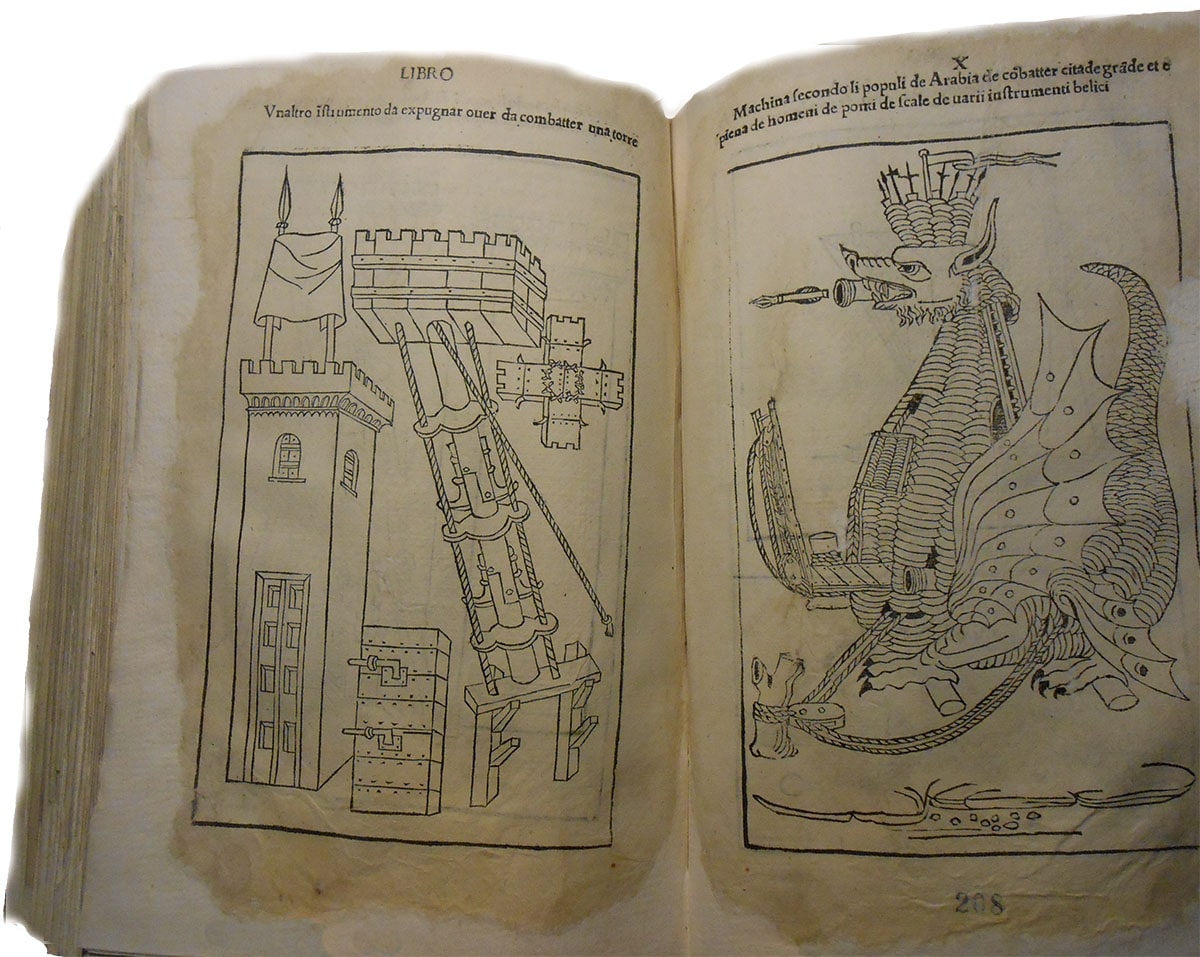 LIBRO
Vnaltro ĩstrumento da expugnar ouer da combatter una torre
X
Machina secondo li populi de Arabia de cõbatter citade grãde et e
piena de homeni de ponti de scale de uarii instrumenti belici
208